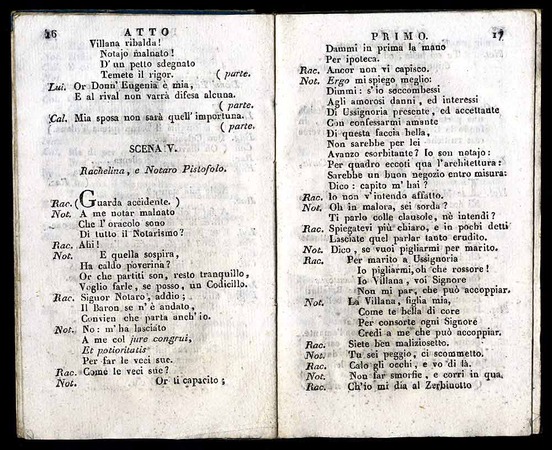 16 ATTO
Villana ribalda!
Notajo malnato!
D'un petto sdegnato
Temete il rigor. (parte.
Lui. Or Donn'Eugenia è mia,
E al rival non varrà difesa alcuna.
(parte.
Cal. Mia sposa non sarà quell'importuna.
(parte.
SCENA V.
Rachelina, e Notaro Pistofolo.
Rac. (Guarda accidente. )
Not. A me notar malnato
Che l'oracolo sono
Di tutto il Notarismo?
Rac. Ahi!
Not. E quella sospira,
Ha caldo poverina?
Or che partiti son, resto tranquillo,
Voglio farle, se posso, un Codicillo.
Rac. Signor Notaro, addio;
Il Baron se n'è andato,
Convien che parta anch'io.
Not. No: m'ha lasciato
A me col jure congrui,
Et potioritatis
Per far le veci sue.
Rac. Come le veci sue?
Not. Or ti capacito;
PRIMO. 17
Dammi in prima la mano
Per ipoteca.
Rac. Ancor non vi capisco.
Not. Ergo mi spiego meglio:
Dimmi: s'io soccombessi
Agli amorosi danni, ed interessi
Di Ussignoria presente, ed accettante
Con confessarmi amante
Di questa faccia bella,
Non sarebbe per lei
Avanzo esorbitante? Io son notajo:
Per quadro eccoti qua l'architettura:
Sarebbe un buon negozio entro misura:
Dico: capito m'hai?
Rac. Io non v'intendo affatto.
Not. Oh in malora, sei sorda?
Ti parlo colle clausole, nè intendi?
Rac. Spiegatevi più chiaro, e in pochi detti
Lasciate quel parlar tanto erudito.
Not. Dico, se vuoi pigliarmi per marito.
Rac. Per marito a Ussignoria
Io pigliarmi, oh che rossore!
Io Villana, voi Signore
Non mi par, che può accoppiar.
Not. La Villana, figlia mia,
Come te bella di core
Per consorte ogni Signore
Credi a me che può accoppiar.
Rac. Siete ben maliziosetto.
Not. Tu sei peggio, ci scommetto.
Rac. Calo gli occhi, e vo di là.
Not. Non far smorfie, e corri in qua.
Rac. Ch'io mi dia al Zerbinotto